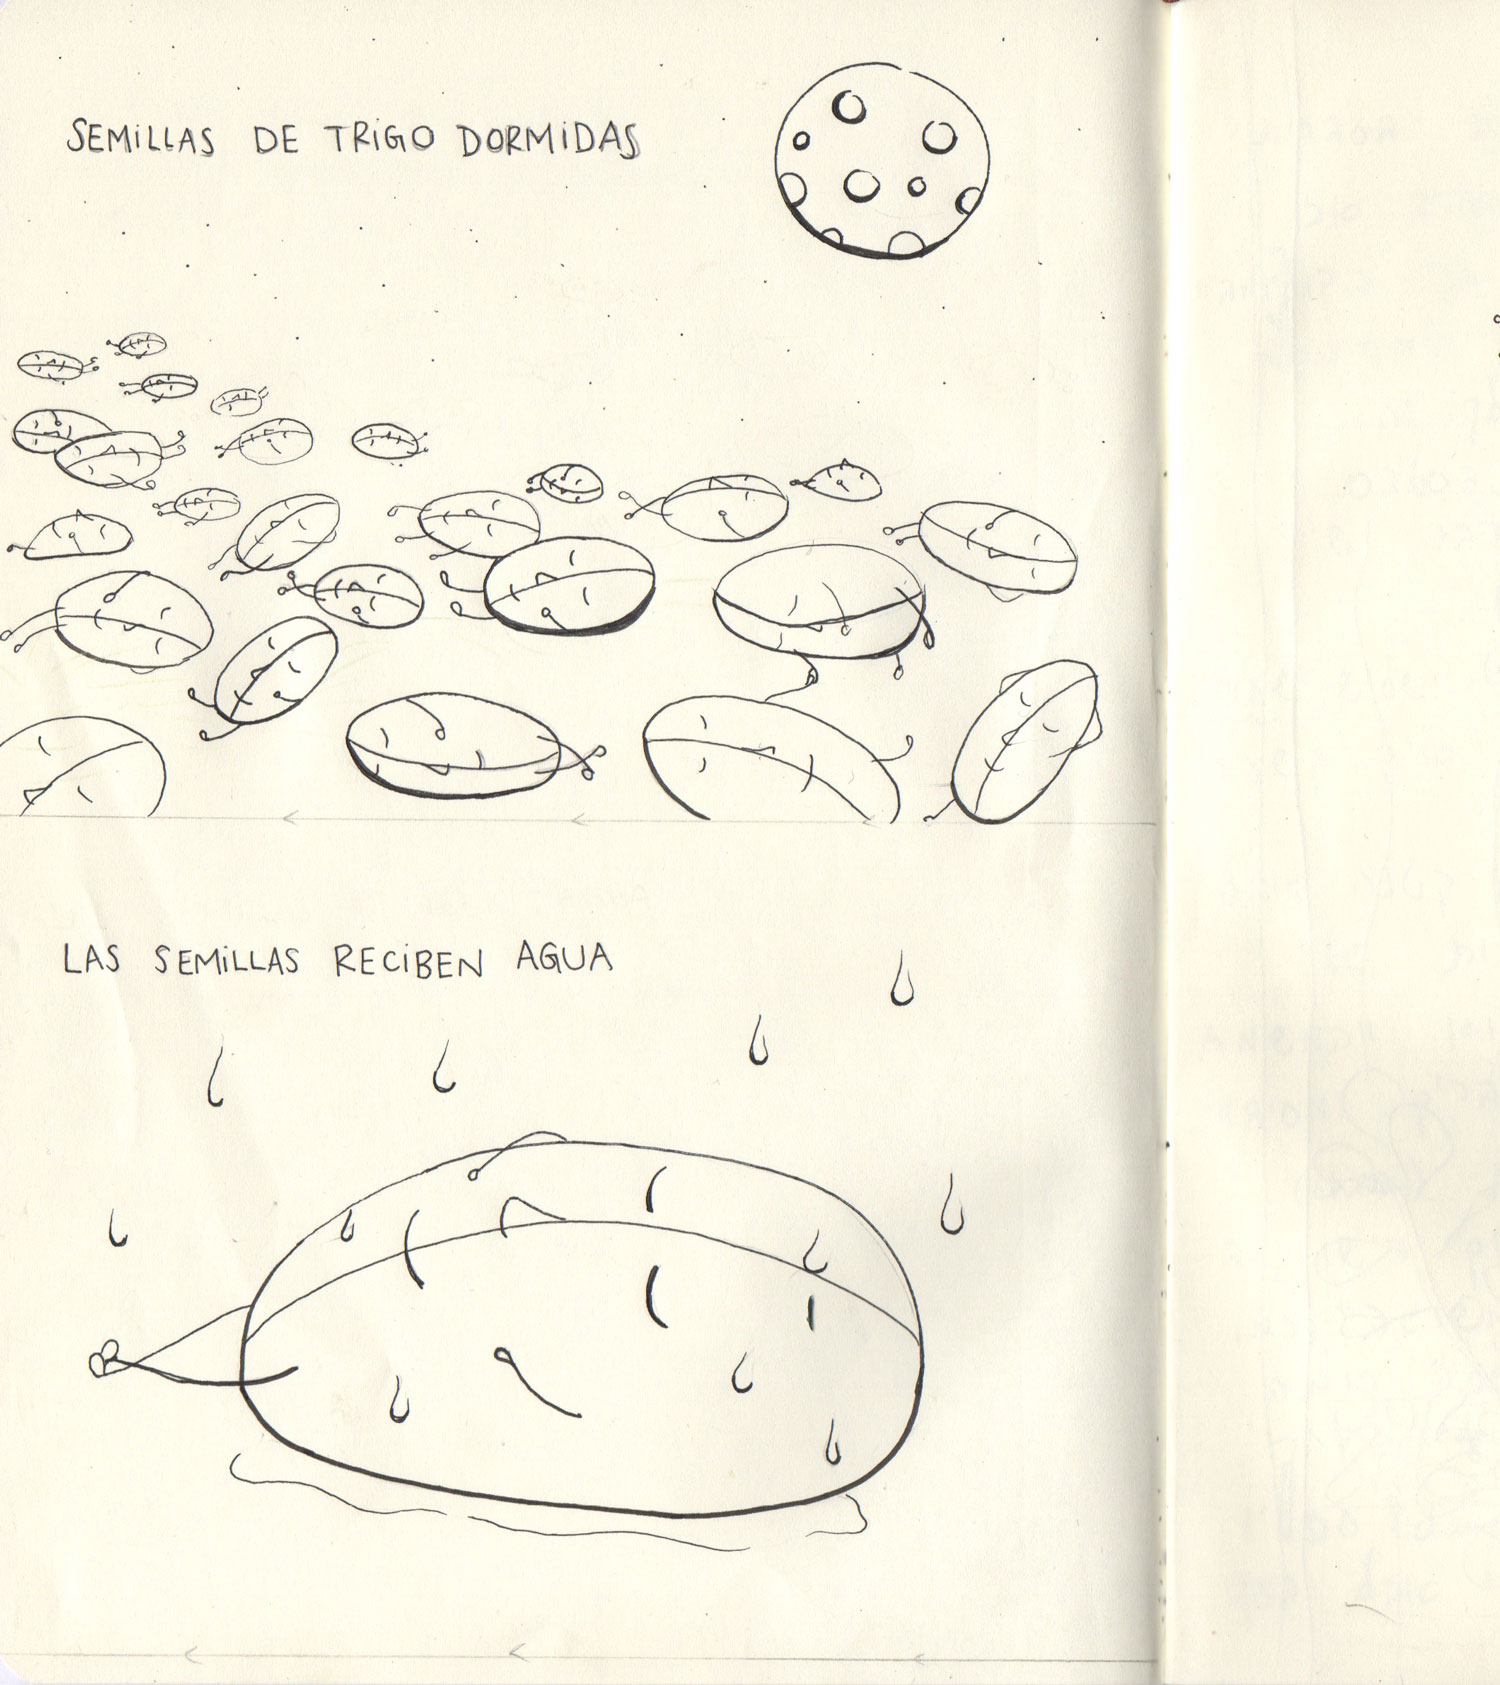 SEMiLLAS DE TRiGO DORMiDAS
LAS SEMiLLAS RECiBEN AGUA